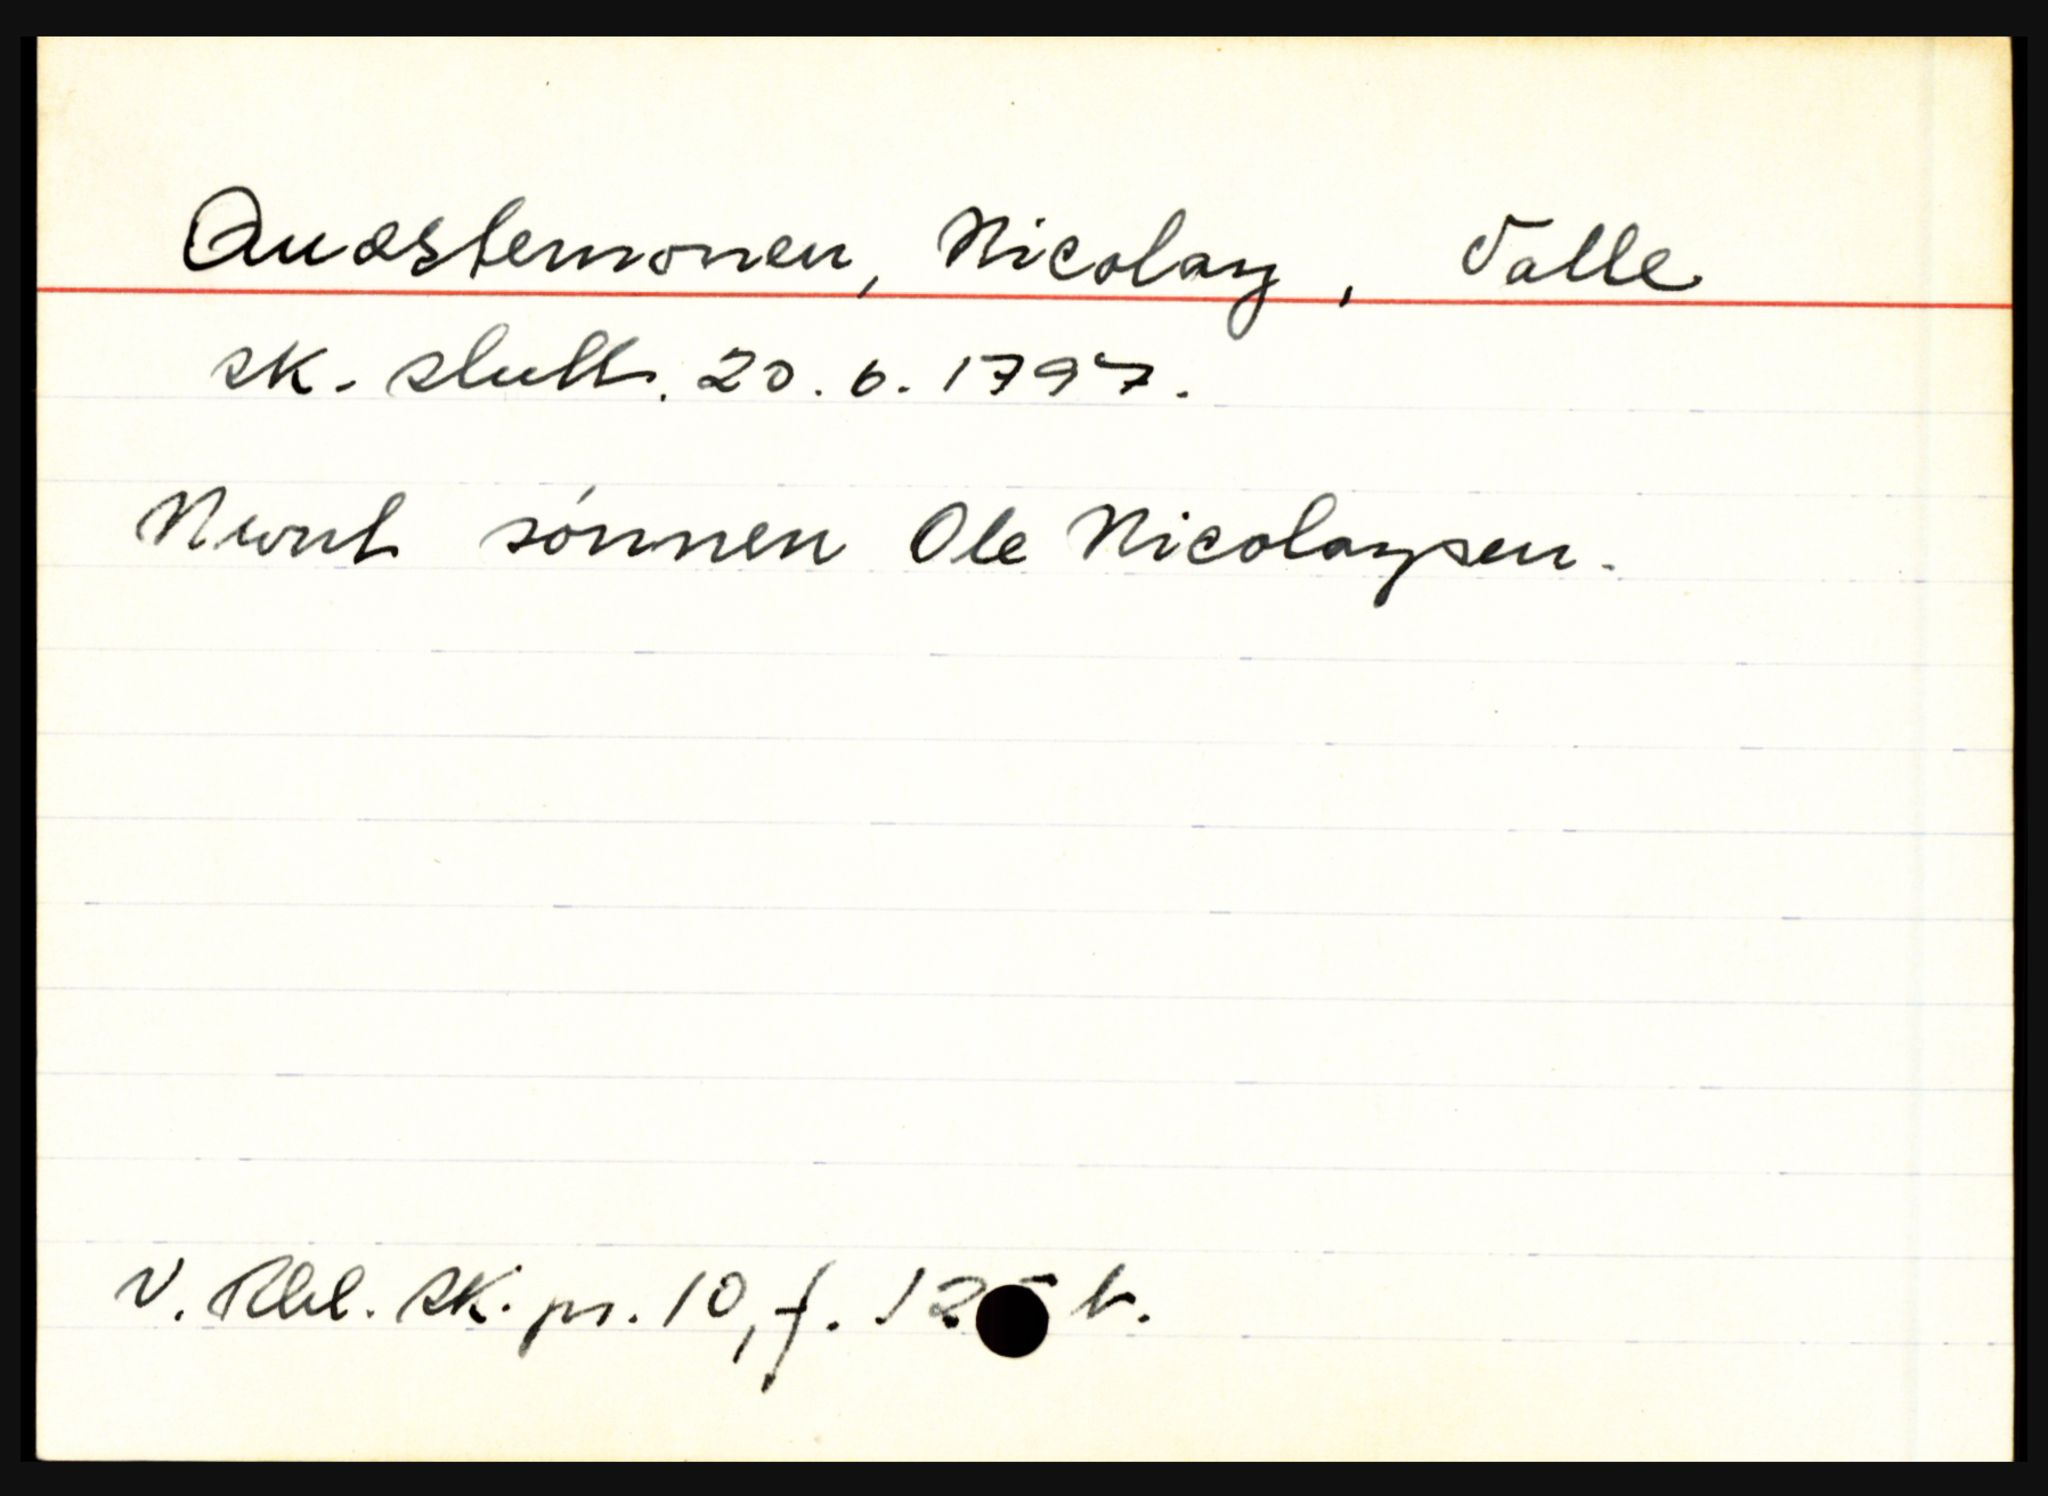 Quæstemonen, Nicolay, Valle
sk. slutt. 20.6.1797.
Nevnt sönnen Ole Nicolaysen.
V. Rbl. sk. pr. 10, f. 125 b.